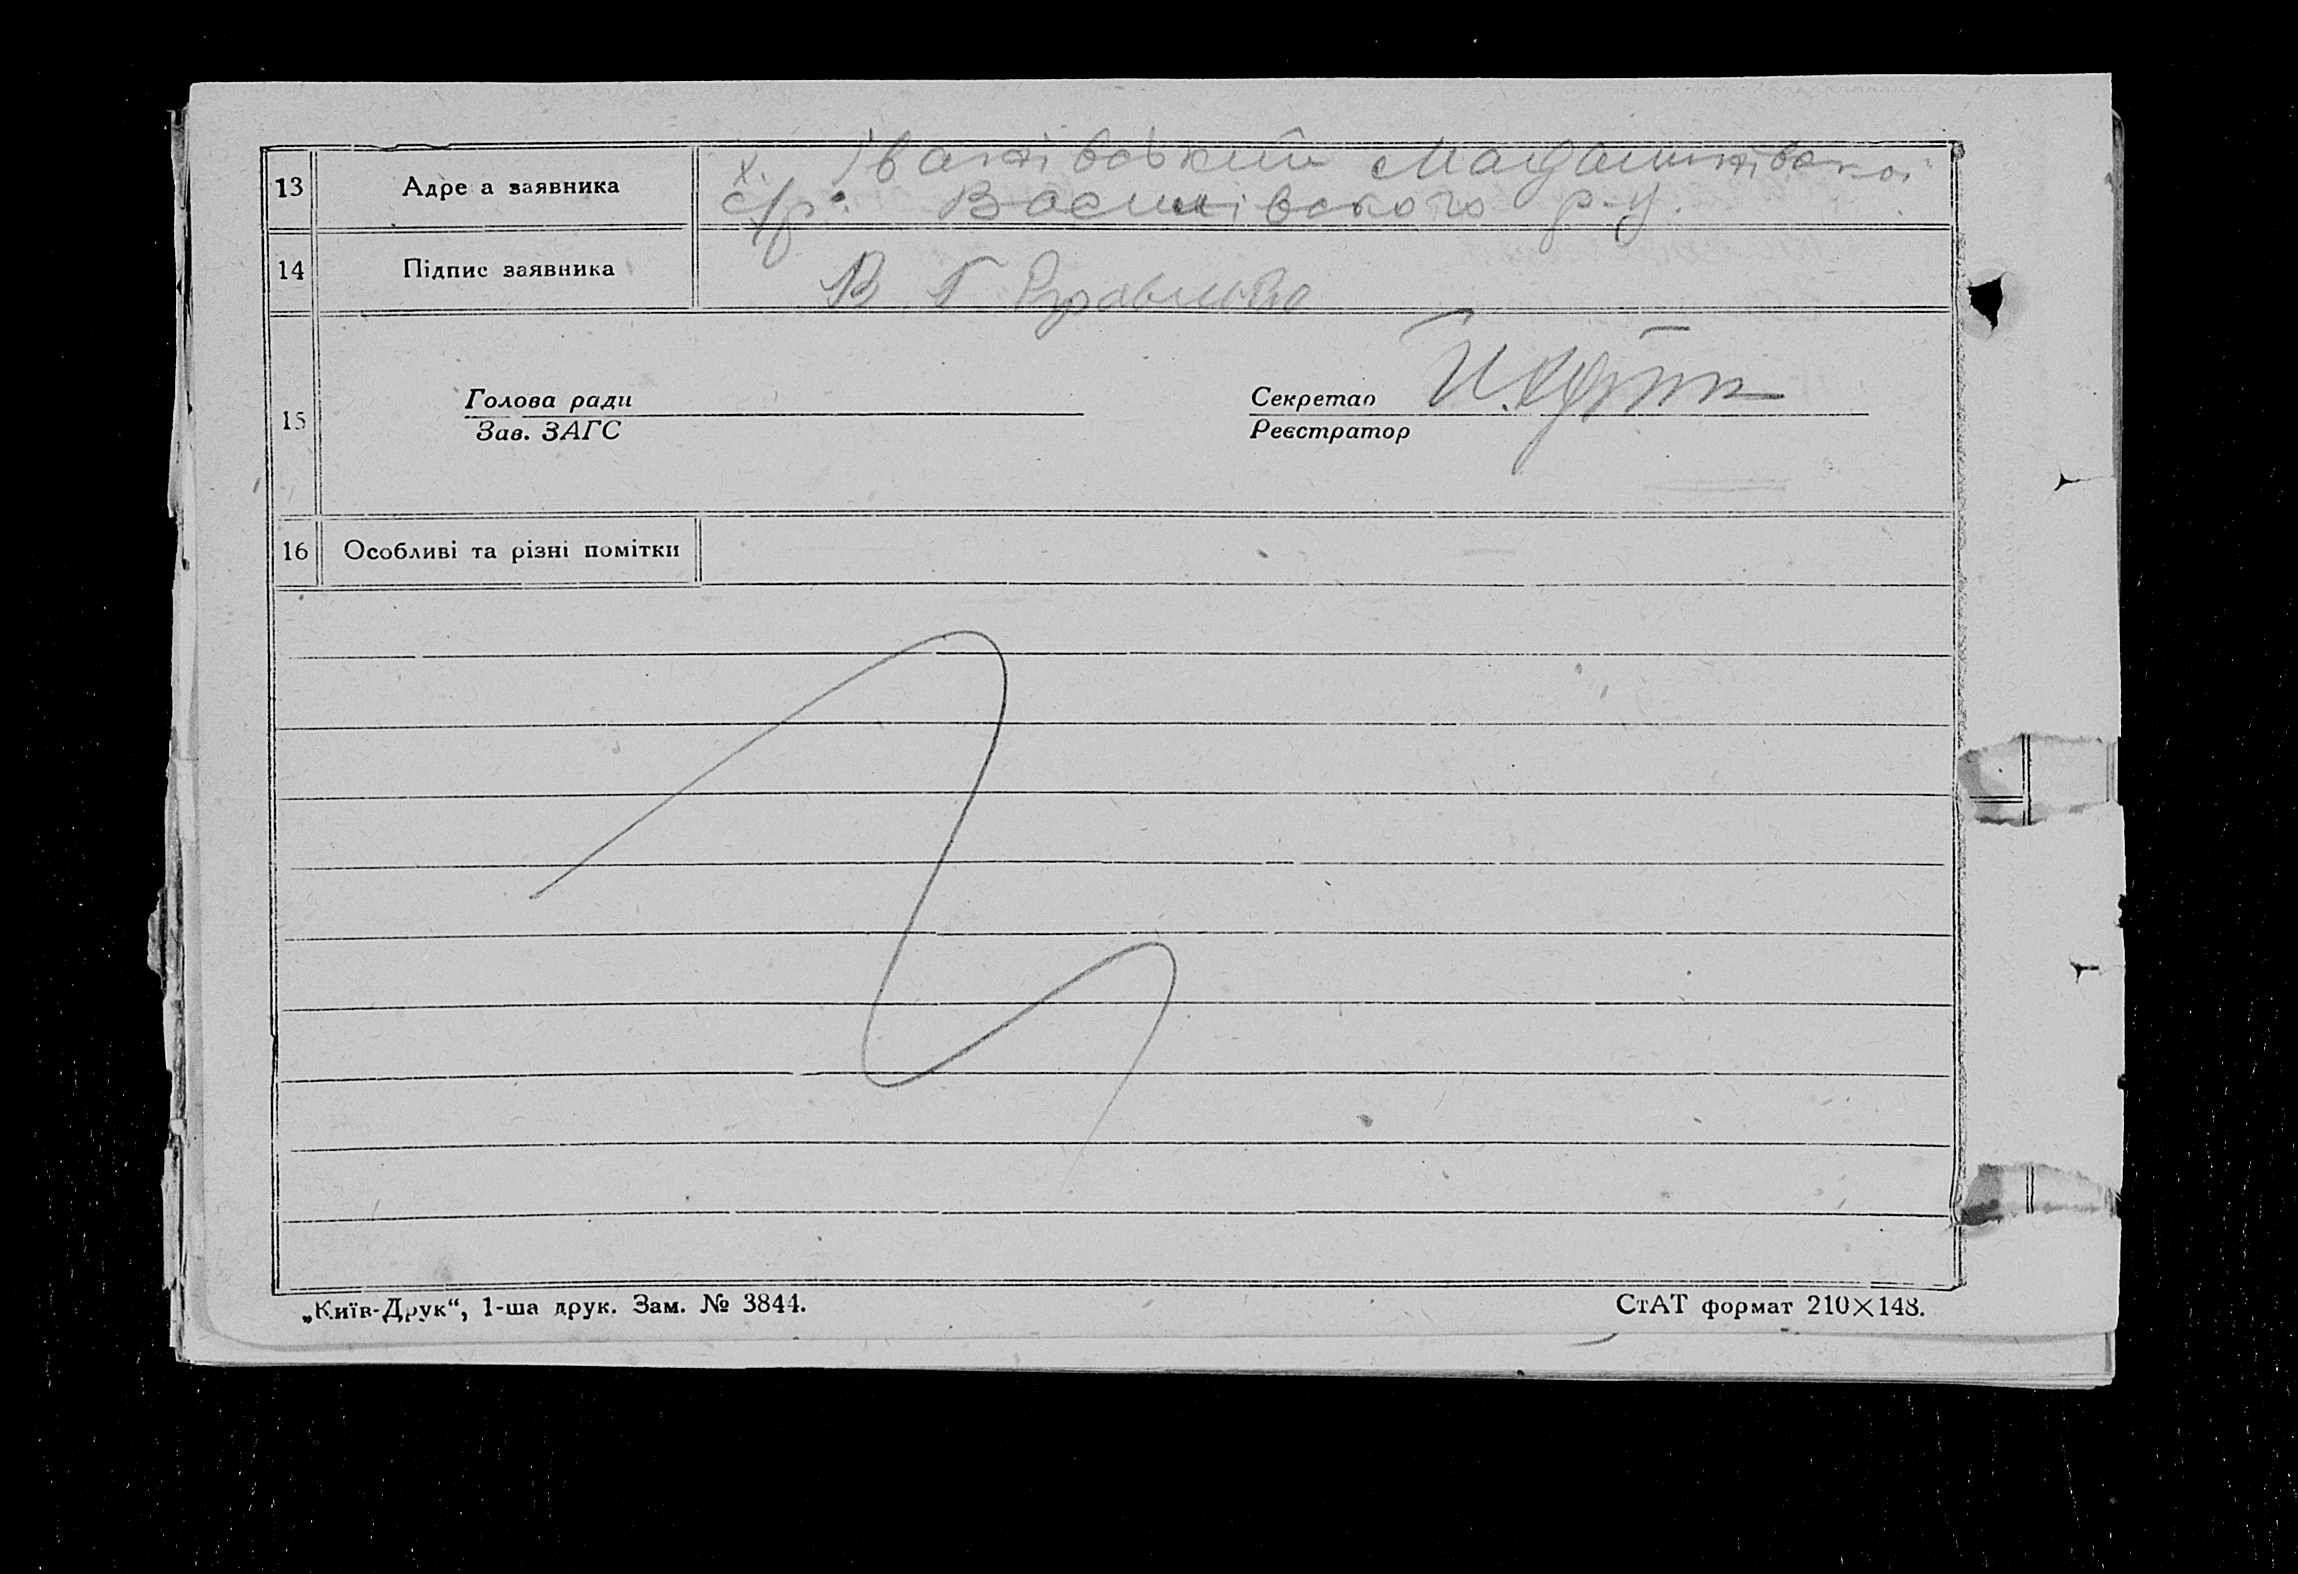 13 Адре а заявника х. Іванівський
с/р. р-у.
14 Підпис заявника В. Г.
15 Голова ради Секретар
Зав. ЗАГС Реєстратор
16 Особливі та різні помітки
„Київ-Друк“, 1-ша друк. Зам. № 3844. СтАТ формат 210×148.